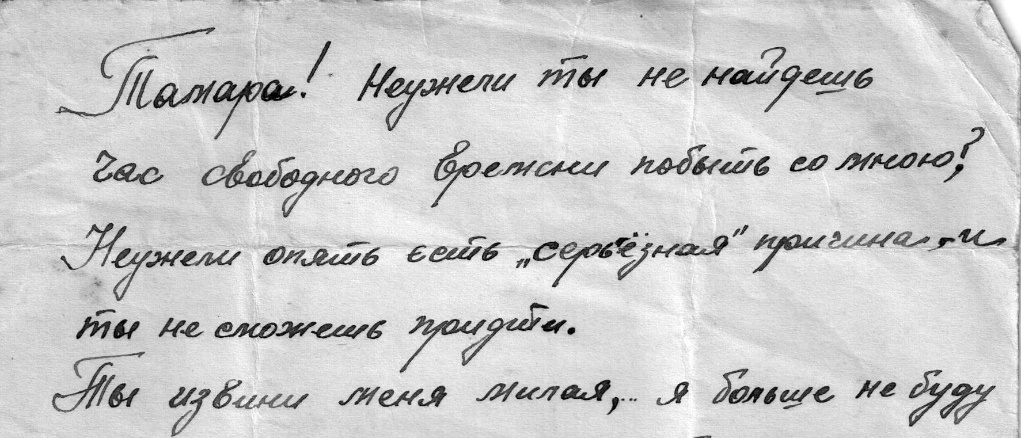 Тамара! Неужели ты не найдешь
час свободного времени побыть со мною?
Неужели опять есть „серьёзная" причина и
ты не сможешь придти.
Ты извини меня милая, я больше не буду